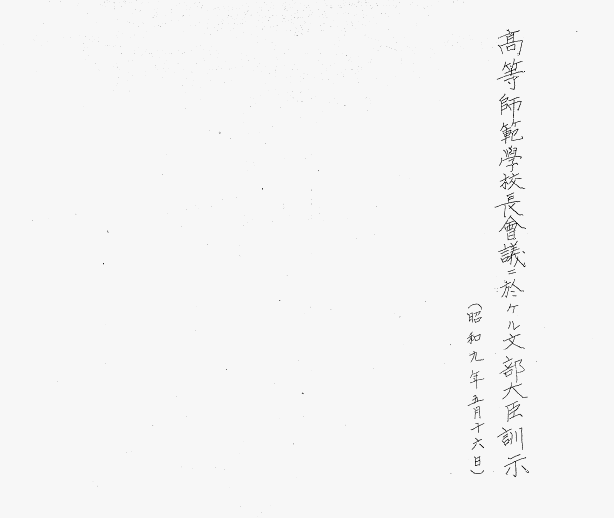 高等師範學校長會議ニ於ケル文部大臣訓示
(昭和九年五月十六日)